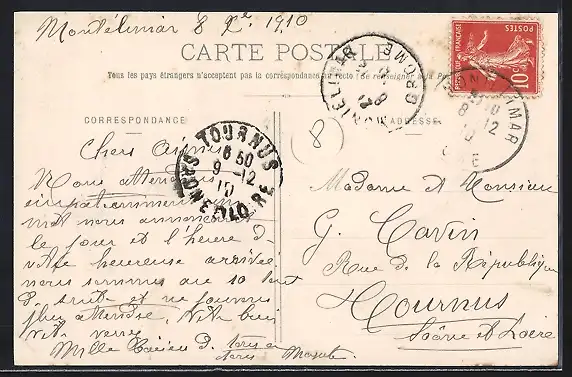 Montélimar 8 Xe 1910
CARTE POSTALE
Tous les pays étrangers n'acceptent pas la correspondance au recto (Se renseigner à la Poste
REPUBLIQUE FRANÇAISE
POSTES
10c
MONTELIMAR
8 -12
10
DROME
MONTELIMAR
8 -12
10
DROME
TOURNUS
6 50
9 -12
10
SAONE-ET-LOIRE
8
CORRESPONDANCE
ADRESSE
Chers Amis
Nous attendons
impatiemment un
mot nous annonçant
le jour et l'heure d
votre heureuse arrivée
nous sommes au 10
d. suite et ne pouvons
plus attendre, vite
vite venez
Mille
Madame et Monsieur
G. Cavin
Rue de la République
Tournus
Saône et Loire